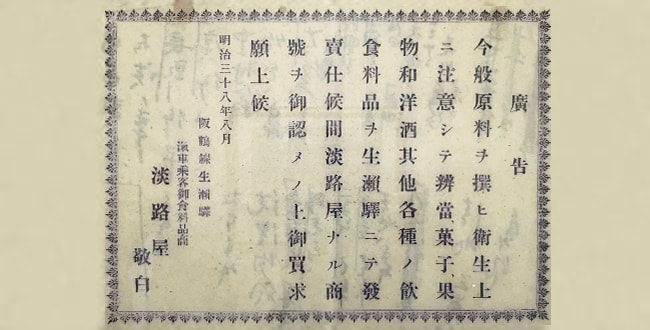 廣告
今般原料ヲ撰ヒ衛生上
ニ注意シテ辨當、菓子、果
物、和洋酒其他各種ノ飮
食料品ヲ生瀨驛ニテ發
賣仕候間淡路屋ナル商
號ヲ御認メノ上御買求
願上候
明治三十八年八月
阪鶴線生瀨驛
滊車乘客御食料品商
淡路屋
敬白